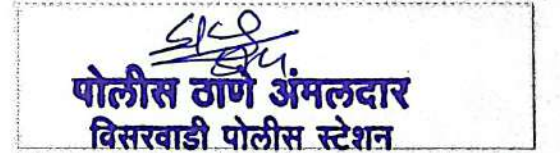 पोलीस ठाणे अंमलदार
विसरवाडी पोलीस स्टेशन